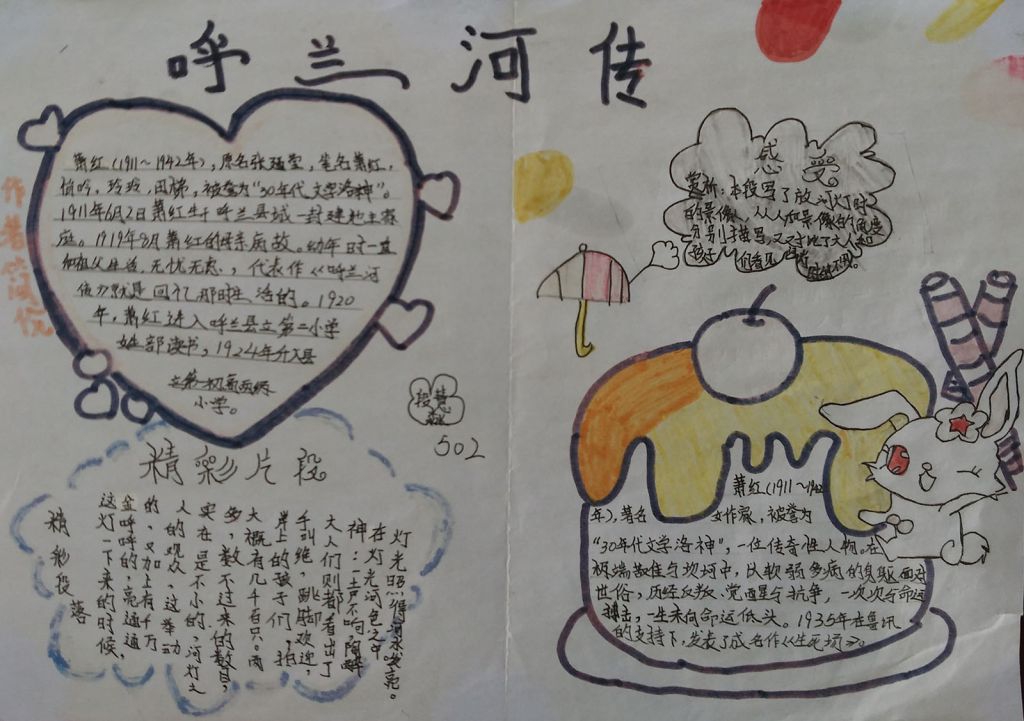 呼兰河传
作者简优
萧红（1911～1942年），原名张廼莹，笔名萧红，
悄吟，玲玲，田娣，被誉为“30年代文学洛神”。
1911年6月2日萧红生于呼兰县城一封建地主家
庭。1919年8月萧红的母亲病故。幼年时一直
和祖父生活，无忧无虑，代表作《呼兰河
传》就是回忆那时生活的。1920
年，萧红进入呼兰县立第二小学
女部读书，1924年升入县
立第一初高两级
小学。
502
精彩片段
精彩段落
这灯一下来的时候，
金呼呼的，亮通通
的，又加上有千万
人的观众，这举动
实在是不小的。河灯之
多，数不过来的数目，
大概有几千百只。两
岸上的孩子们，拍
手叫绝，跳脚欢迎，
大人们则都看出了
神，一声不响，陶醉
在灯光河色之中
灯光照得河水幽亮。
感受
赏析：本段写了放河灯时
的景像，从人和景像的角度
分别描写，又对比了大人和
孩子们看见
时的不同。
萧红（1911～1942
年），著名女作家，被誉为
“30年代文学洛神”，一位传奇性人物。在
极端苦难与坎坷中，以软弱多病的身躯面对
世俗，历经反叛、觉醒与抗争，一次次与命运
搏击，一生未向命运低头。1935年在鲁迅
的支持下，发表了成名作《生死场》。